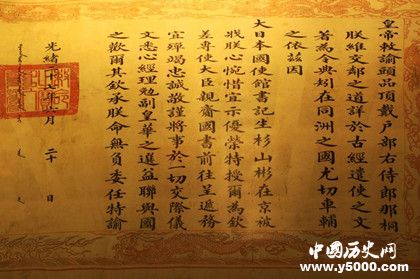 皇帝敕諭頭品頂戴戶部右侍郎那桐
朕維交鄰之道詳於古經遣使之文
著為令典矧在同洲之國尤切車輔
之依茲因
大日本國使館書記生杉山彬在京被
戕朕心惋惜宣示優榮特授爾為欽
差專使大臣親齎國書前往呈遞務
宜殫竭忠誠敬謹將事於一切交際儀
文悉心經理勉副皇華之選益聯與國
之歡爾其欽承朕命無負委任特諭
光緒二十七年 月二十日
中國历史网
www.y5000.com